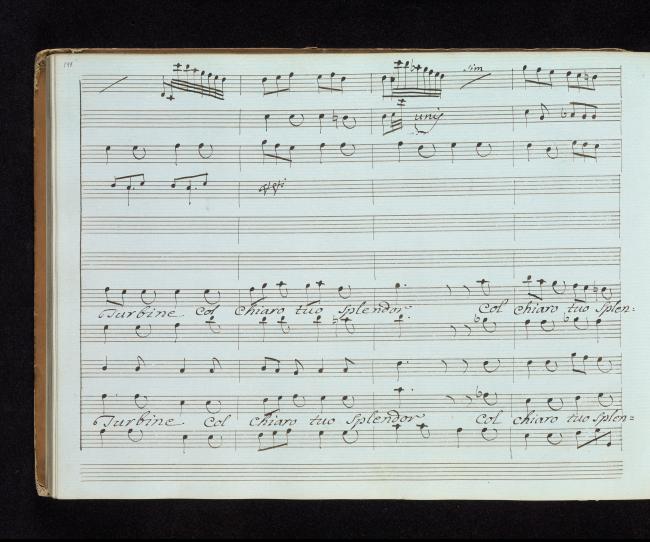 sim
unis
Turbine Col chiaro tuo splendor Col chiaro tuo splen=
Turbine Col chiaro tuo splendor Col chiaro tuo splen=